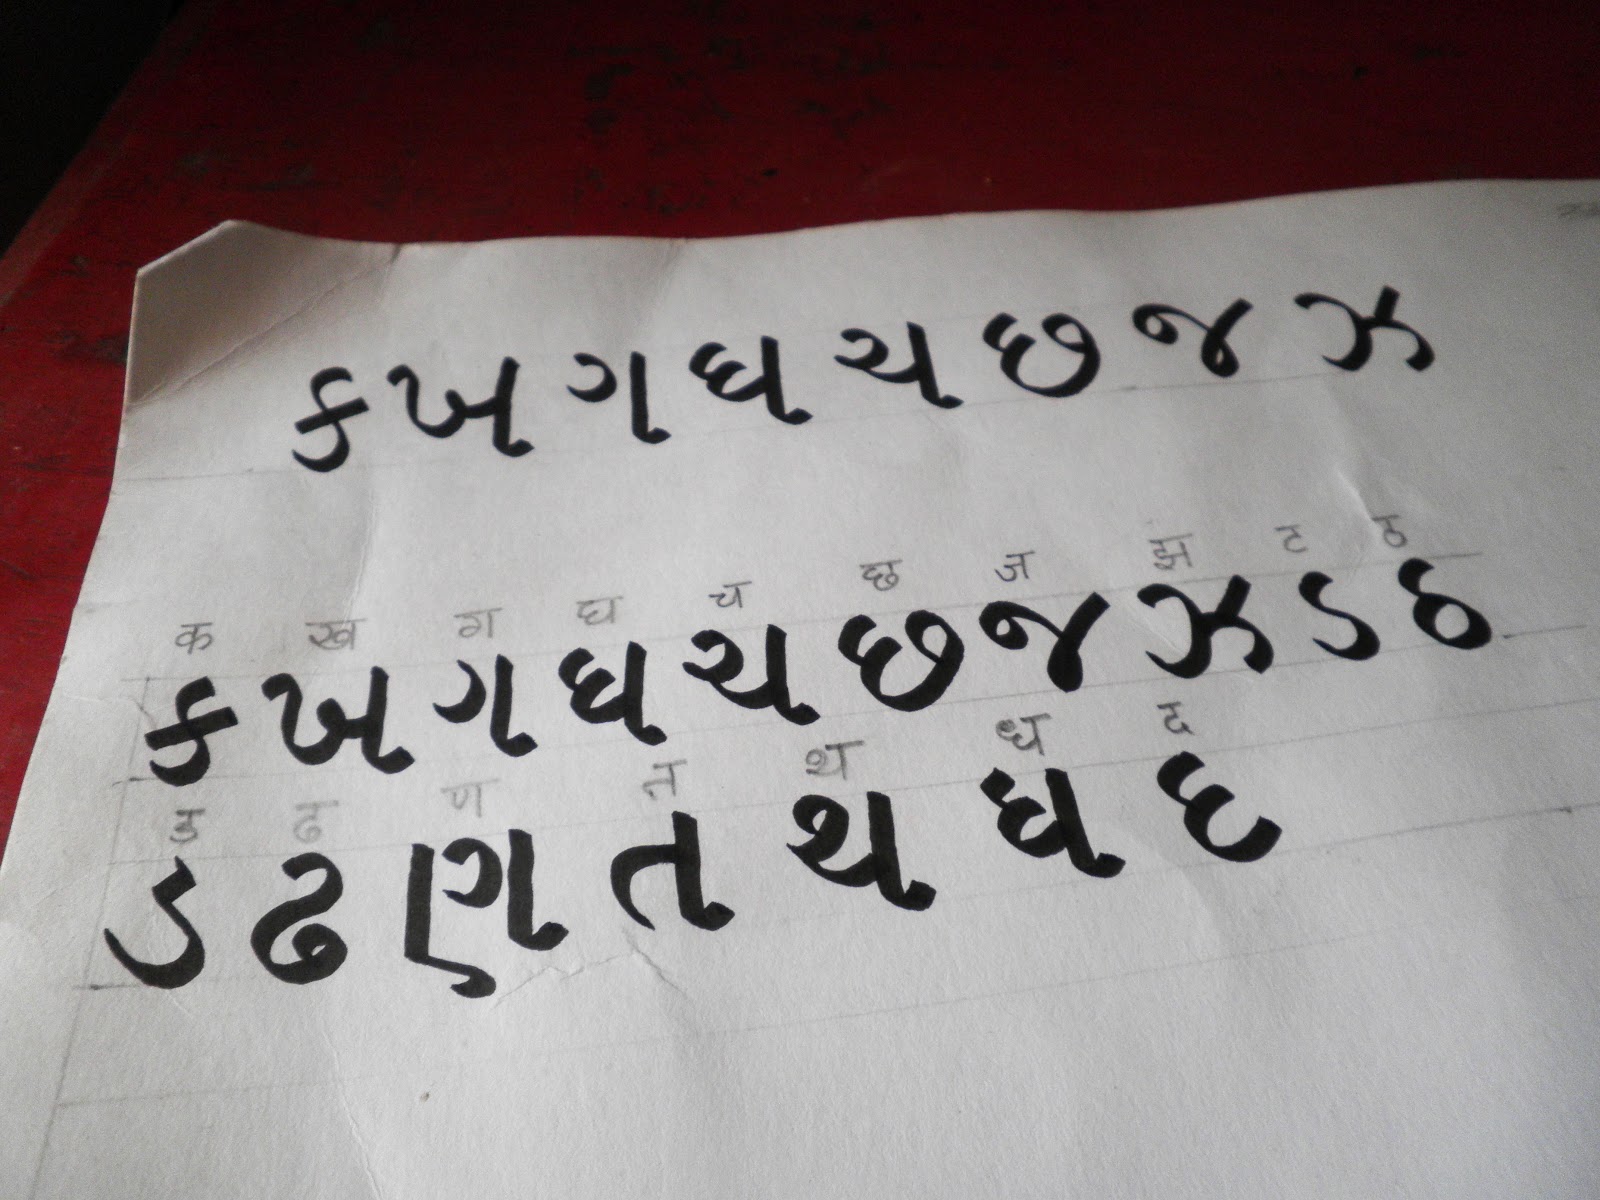 ક ખ ગ ઘ ચ છ જ ઝ
क ख ग घ च छ ज झ ट ठ
ક ખ ગ ઘ ચ છ જ ઝ ટ ઠ
ड ढ ण त थ ध द
ડ ઢ ણ ત થ ધ દ